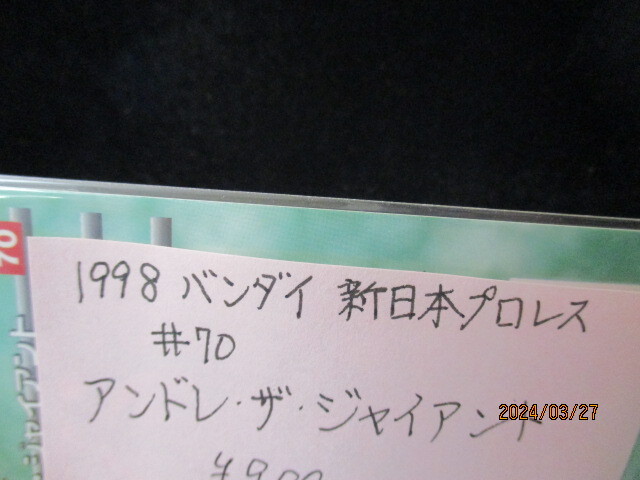 1998 バンダイ 新日本プロレス
#70
アンドレ・ザ・ジャイアント
¥900
70
ジャイアント
2024/03/27